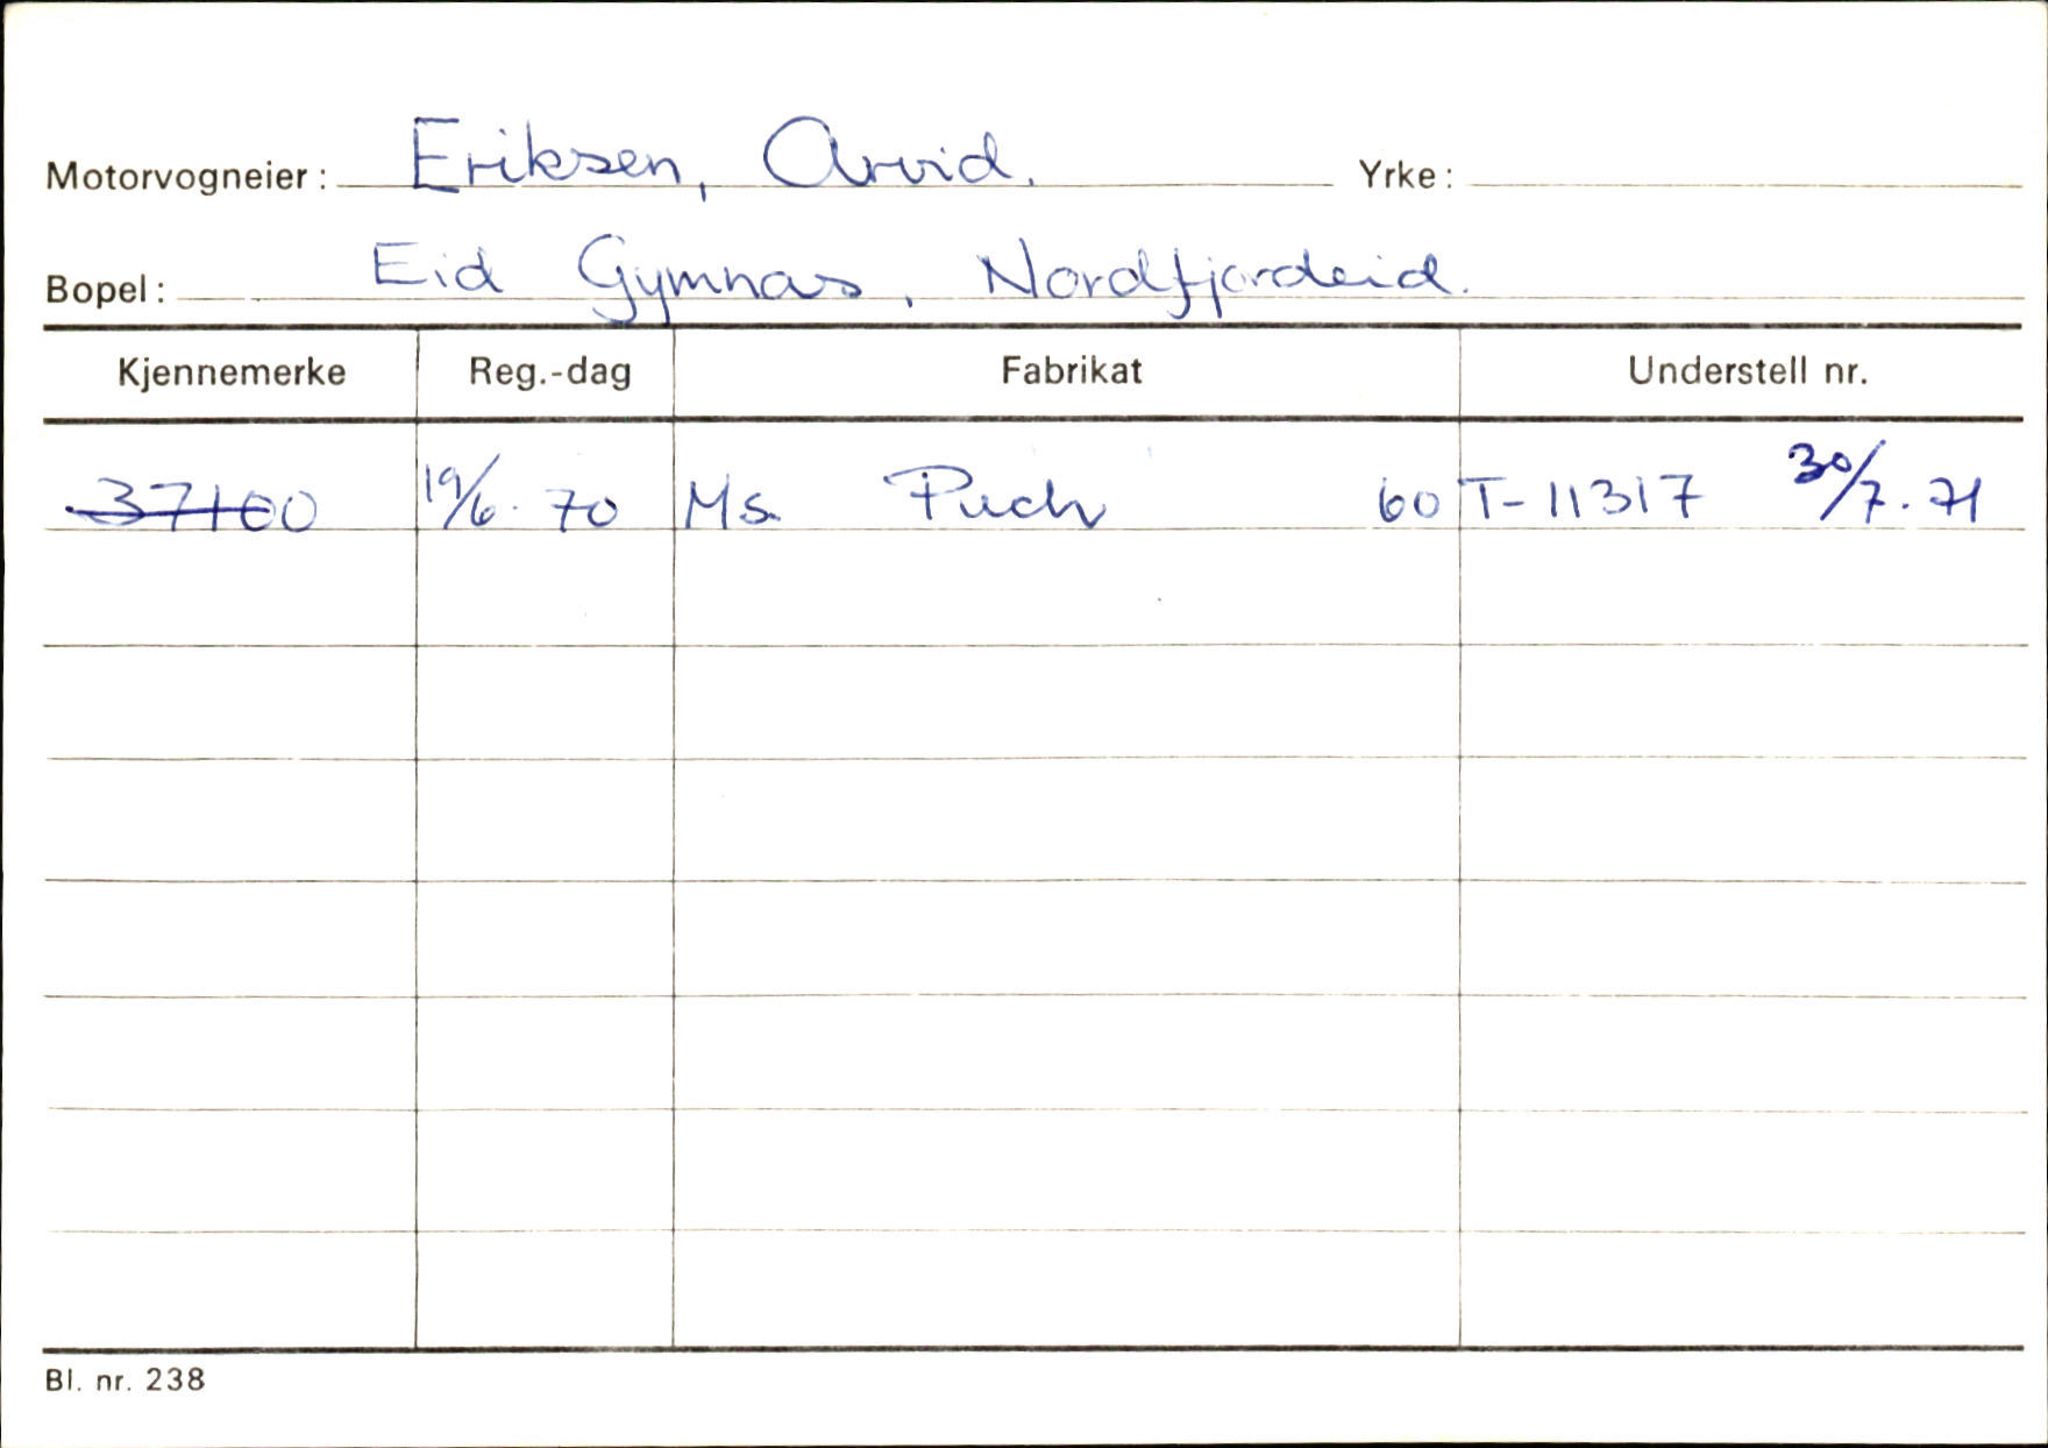 Motorvogneier: Eriksen, Arvid. Yrke:
Bopel: Eid Gymnas, Nordfjordeid.
Kjennemerke Reg.-dag Fabrikat Understell nr.
37100 19/6. 70 Ms. Puch 60 T-11317 30/7. 71
Bl. nr. 238